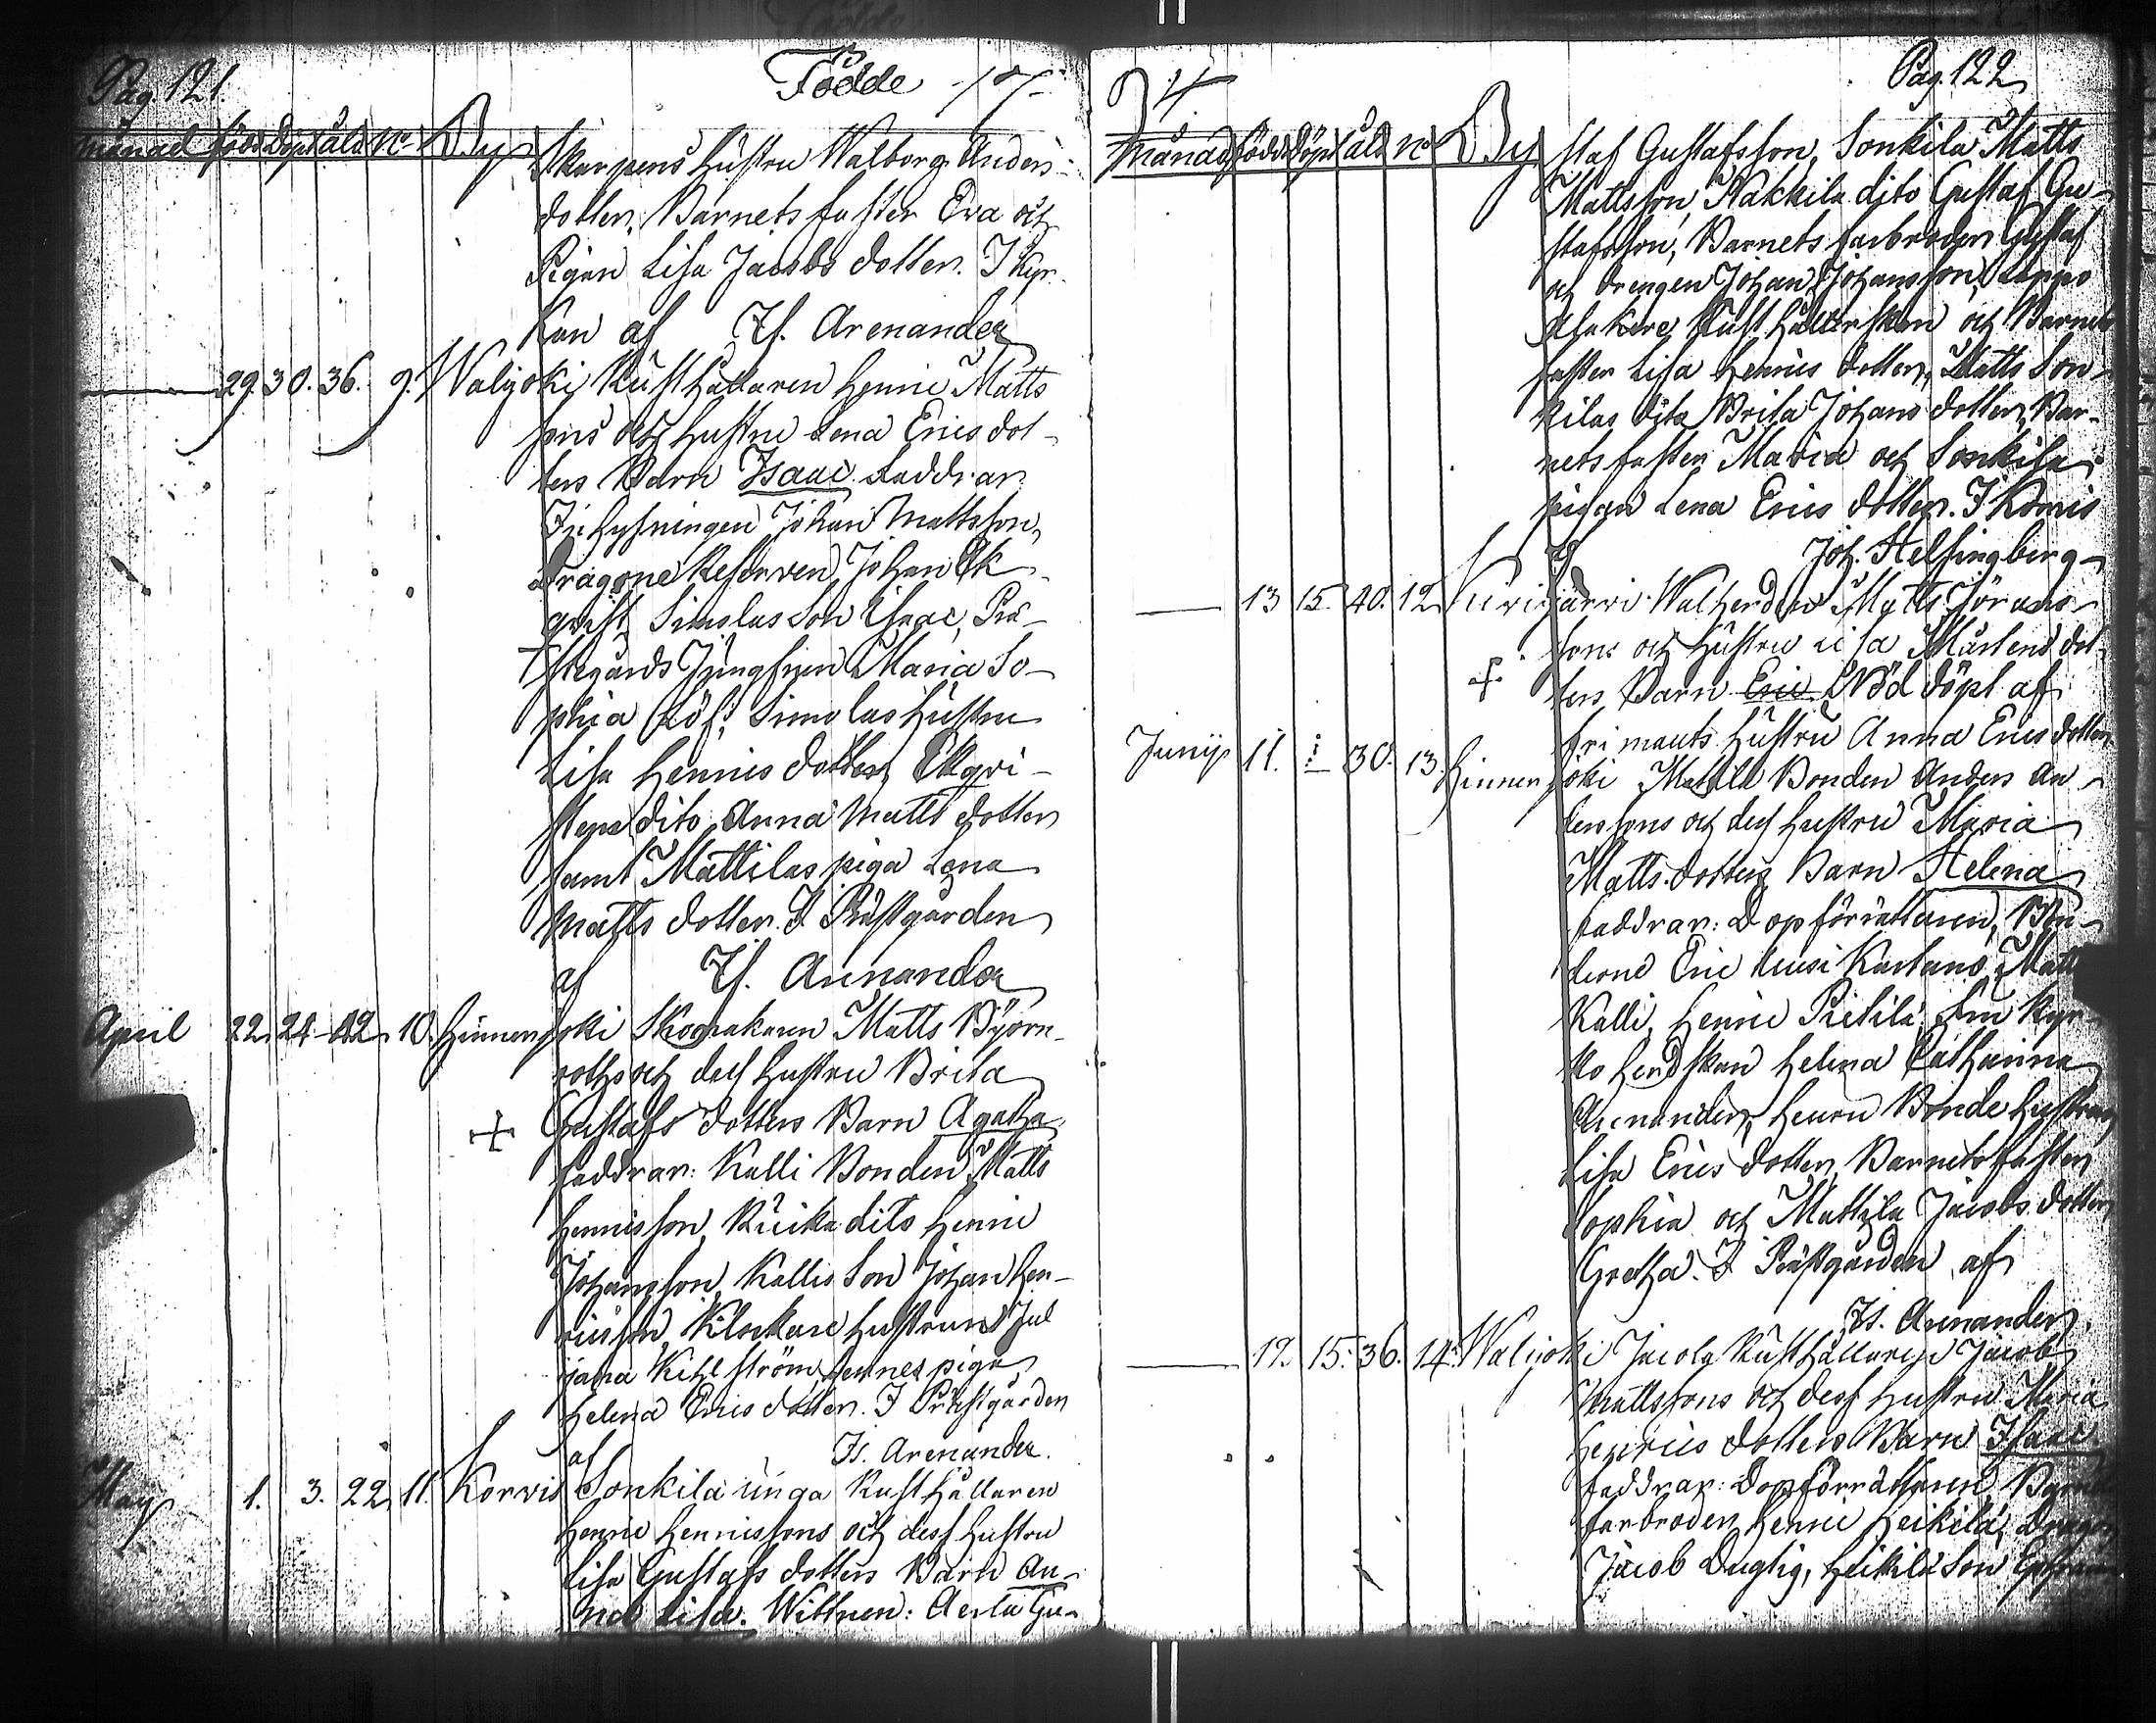 Pag. 121.
Födde 17
Månad född Döpt åld No By
Skarpens hustru Walborg Anders-
dotter, Barnets faster Eva och
Pigan Lisa Jacobs dotter. I Kyr-
kan af Is. Arenander
29. 30. 36. 9. Walijoki Rusthållaren Henric Matts
sons och hustru Lena Erics dot-
ters Barn Isaac. Faddrar
Inhysningen Johan Mattsson,
Dragone Reserven Johan Ek-
qvist, Simolas Son Isaac, Prä-
stegårds Jungfrun Maria So-
phia Löf, Simolas hustru
Lisa Henrics dotter, Ekqvi-
stens dito Anna Matts dotter
samt Mattilas piga Lena
Matts dotter. I Prästgården
af Is. Arenander
April 22 24 42 10. Hinnerjoki Skomakaren Matts Björn-
roths och dess hustru Brita
+ Gustafs dotters Barn Agatha.
faddrar: Kalli Bonden Matts
Henricsson, Ruika dito Henric
Johansson, Kallis Son Johan Hen-
ricsson, Klockare hustrun Jul
jana Kihlström, hennes piga
Helena Erics dotter. I Prästgården
af Is. Arenander.
May 1. 3. 22 11. Korvis Sonkila unga Rusthållaren
Henric Henricssons och dess hustru
Lisa Gustafs dotters Barn An-
na Lisa. Wittnen: Aerla Gu-
94
Pag. 122
Månad född Döpt åld No By
staf Gustafsson, Sonkila Matts
Mattsson, Hakkila dito Gustaf Gu-
stafsson, Barnets farbroder Gustaf
och drengen Johan Johansson, Lappo
Rusthållarskan och Barnets
faster Lisa Henrics dotter, Matts Son-
kilas dito Brita Johans dotter, Bar-
nets faster Maria och Sonkila
pigan Lena Erics dotter. I Korvis
af Joh. Helsingberg
13 15. 40. 12 Kirijärvi Matts Jörans-
sons och hustru Lisa Mårtens dot-
+ ters Barn Eric Nöd döpt af
hustru Anna Erics dotter
Junij 11. 30. 13. Hinnerjoki Bonden Anders An-
derssons och dess hustru Maria
Matts dotters Barn Helena
faddrar: Dopförrättaren, Bön-
derne Eric Uusi Kartano, Matts
Kalli, Henric Pietilä, Fru Kyr-
ko herdskan Helena Catharina
Arenander, Bonde hustrun
Lisa Erics dotter, Barnets faster
Sophia och Mattila Jacobs dotter
Gretha. I Prästgården af
Is. Arenander.
12. 15. 36. 14. Walijoki Jacola Rusthållaren Jacob
Mattssons och dess hustru Maria
Henrics dotters Barn Isaac.
faddrar: Dopförrättaren, Barnets
farbroder Henric Heikilä, Dragon
Jacob Dugtig, Heikilä Son